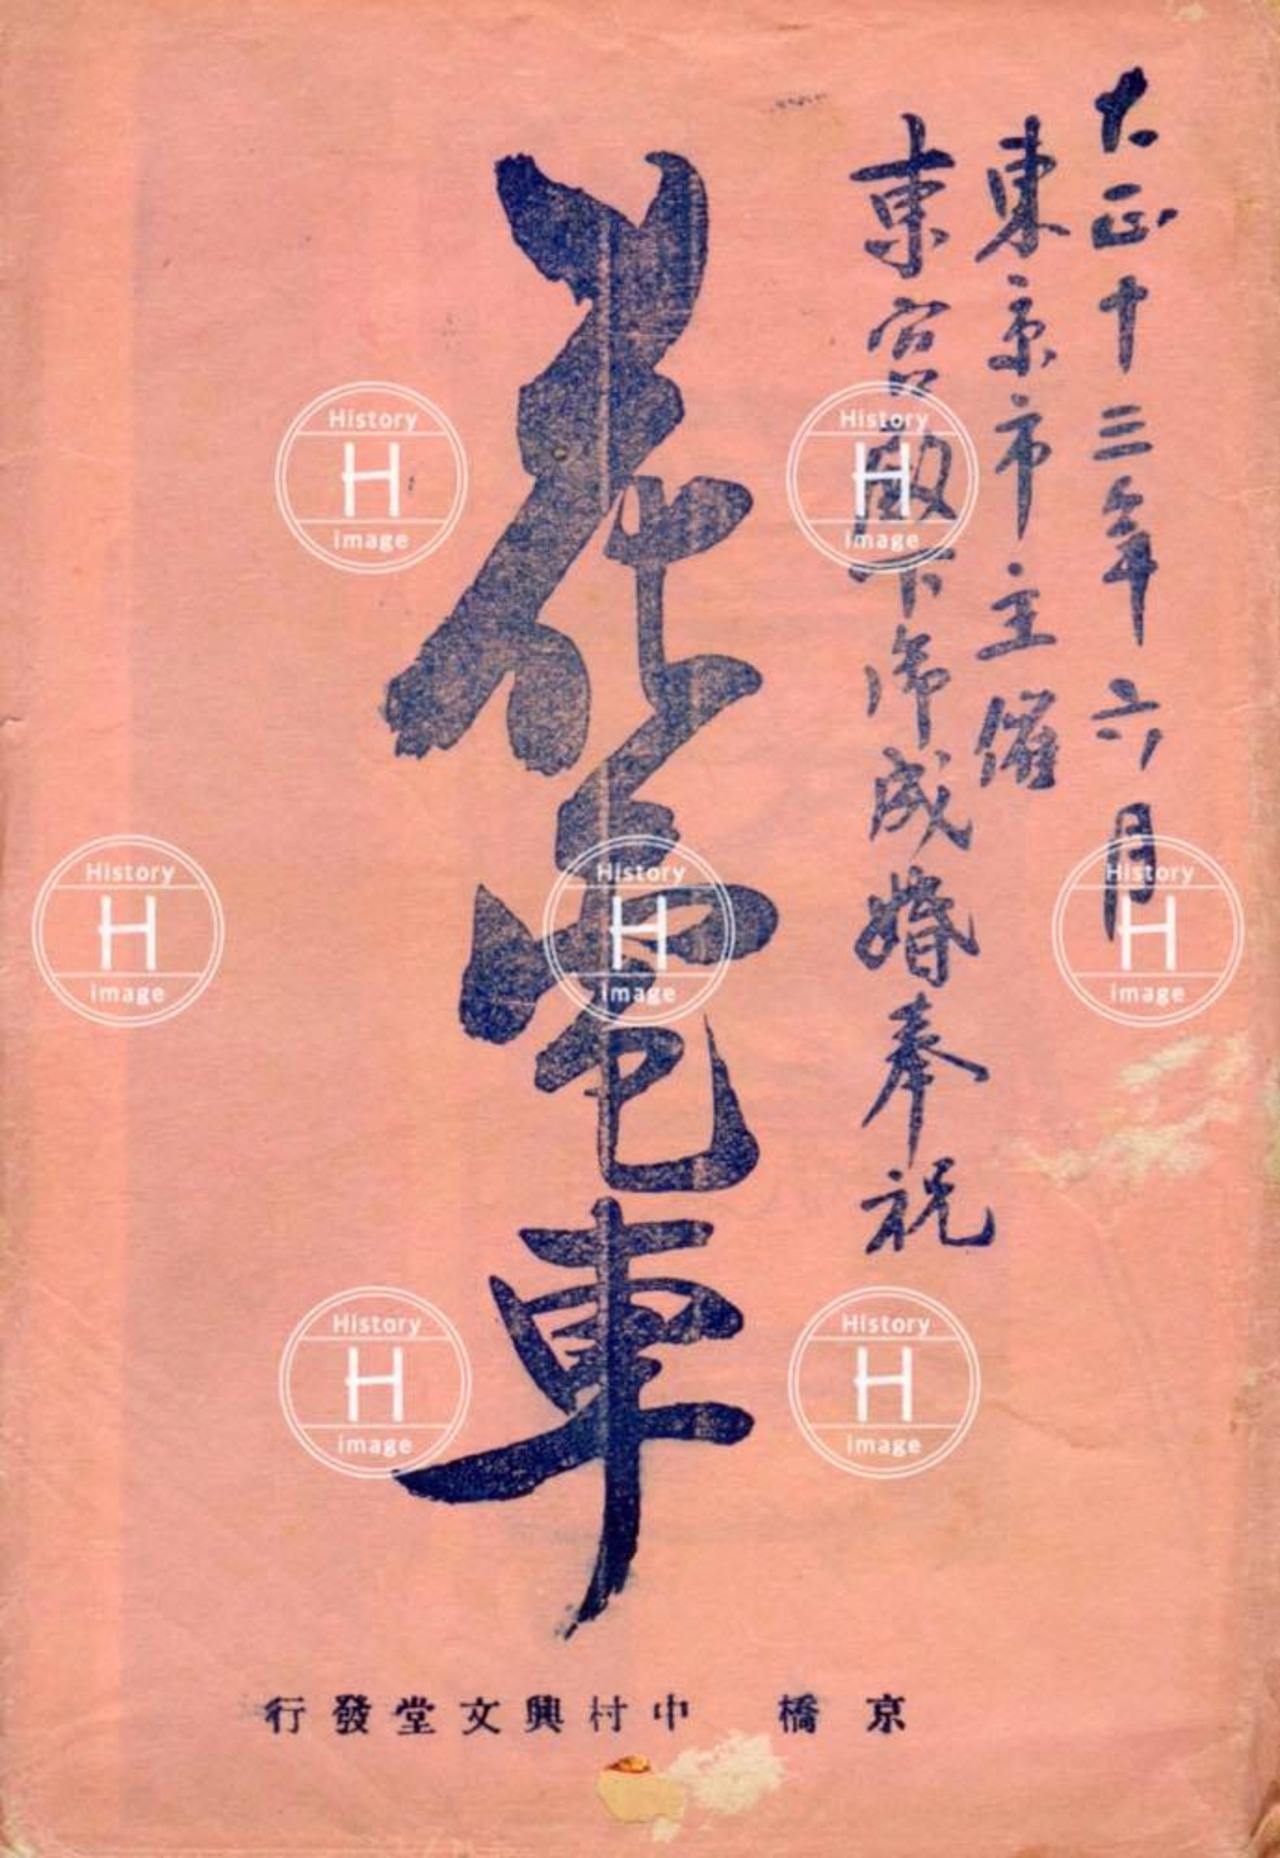 大正十三年六月
東京市主催
東宮殿下御成婚奉祝
花電車
京橋 中村興文堂發行
History
H
image
History
H
image
History
H
image
History
H
image
History
H
image
History
H
image
History
H
image